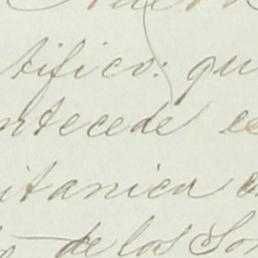 tifico: que
ntecede e
itanica e
de los So